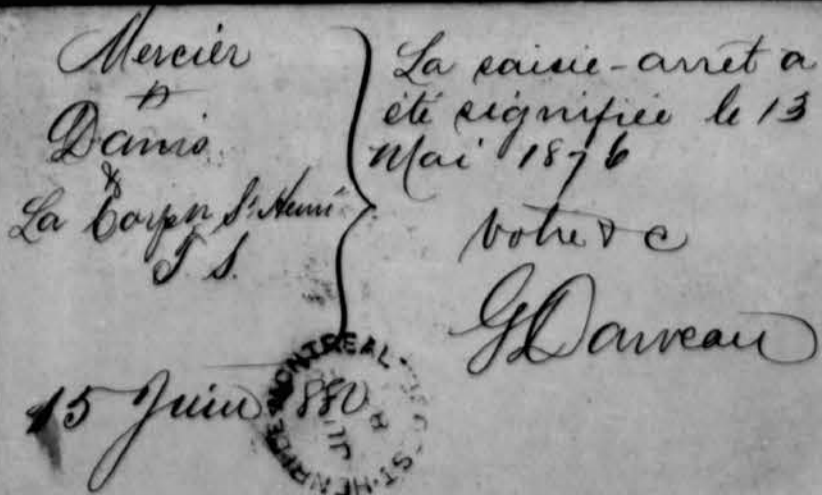 Mercier
vs
Danis
&
La Corpn St Henri
T. S.
La saisie-arret a
été signifiée le 13
Mai 1876
Votre &c
G Darveau
15 Juin 1880
MONTREAL
ST-HENRI DE
JU